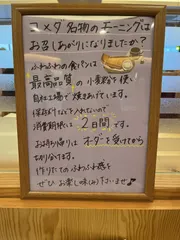 コメダ名物のモーニングは
お召しあがりになりましたか?
ふわふわの食パンは
最高品質の小麦粉を使い
自社工場で焼きあげています。
保存料などを入れないので
消費期限は、2日間です。
お持ち帰りは、オーダーを受けてから
切り分けます。
作りたてのふわふわ感を
ぜひお楽しみ(味)下さいませ♪